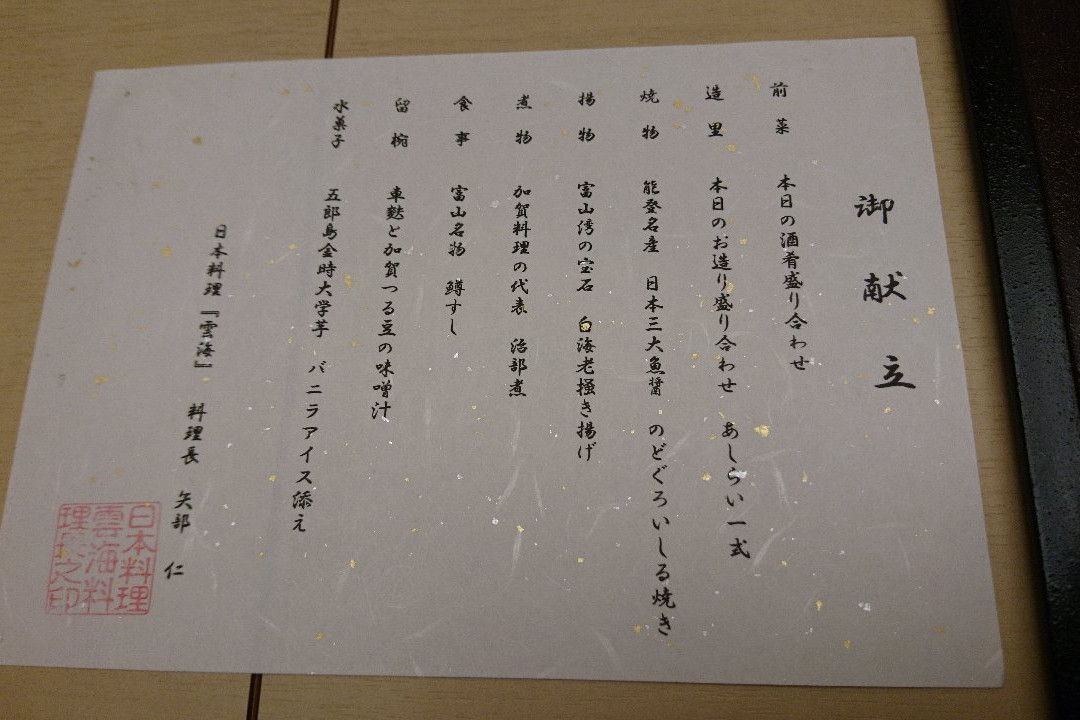 御献立
前菜 本日の酒肴盛り合わせ
造里 本日のお造り盛り合わせ あしらい一式
焼物 能登名産 日本三大魚醤 のどぐろいしる焼き
揚物 富山湾の宝石 白海老掻き揚げ
煮物 加賀料理の代表 治部煮
食事 富山名物 鱒すし
留椀 車麩と加賀つる豆の味噌汁
水菓子 五郎島金時大学芋 バニラアイス添え
日本料理『雲海』 料理長 矢部 仁
日本料理
雲海料
理長之印